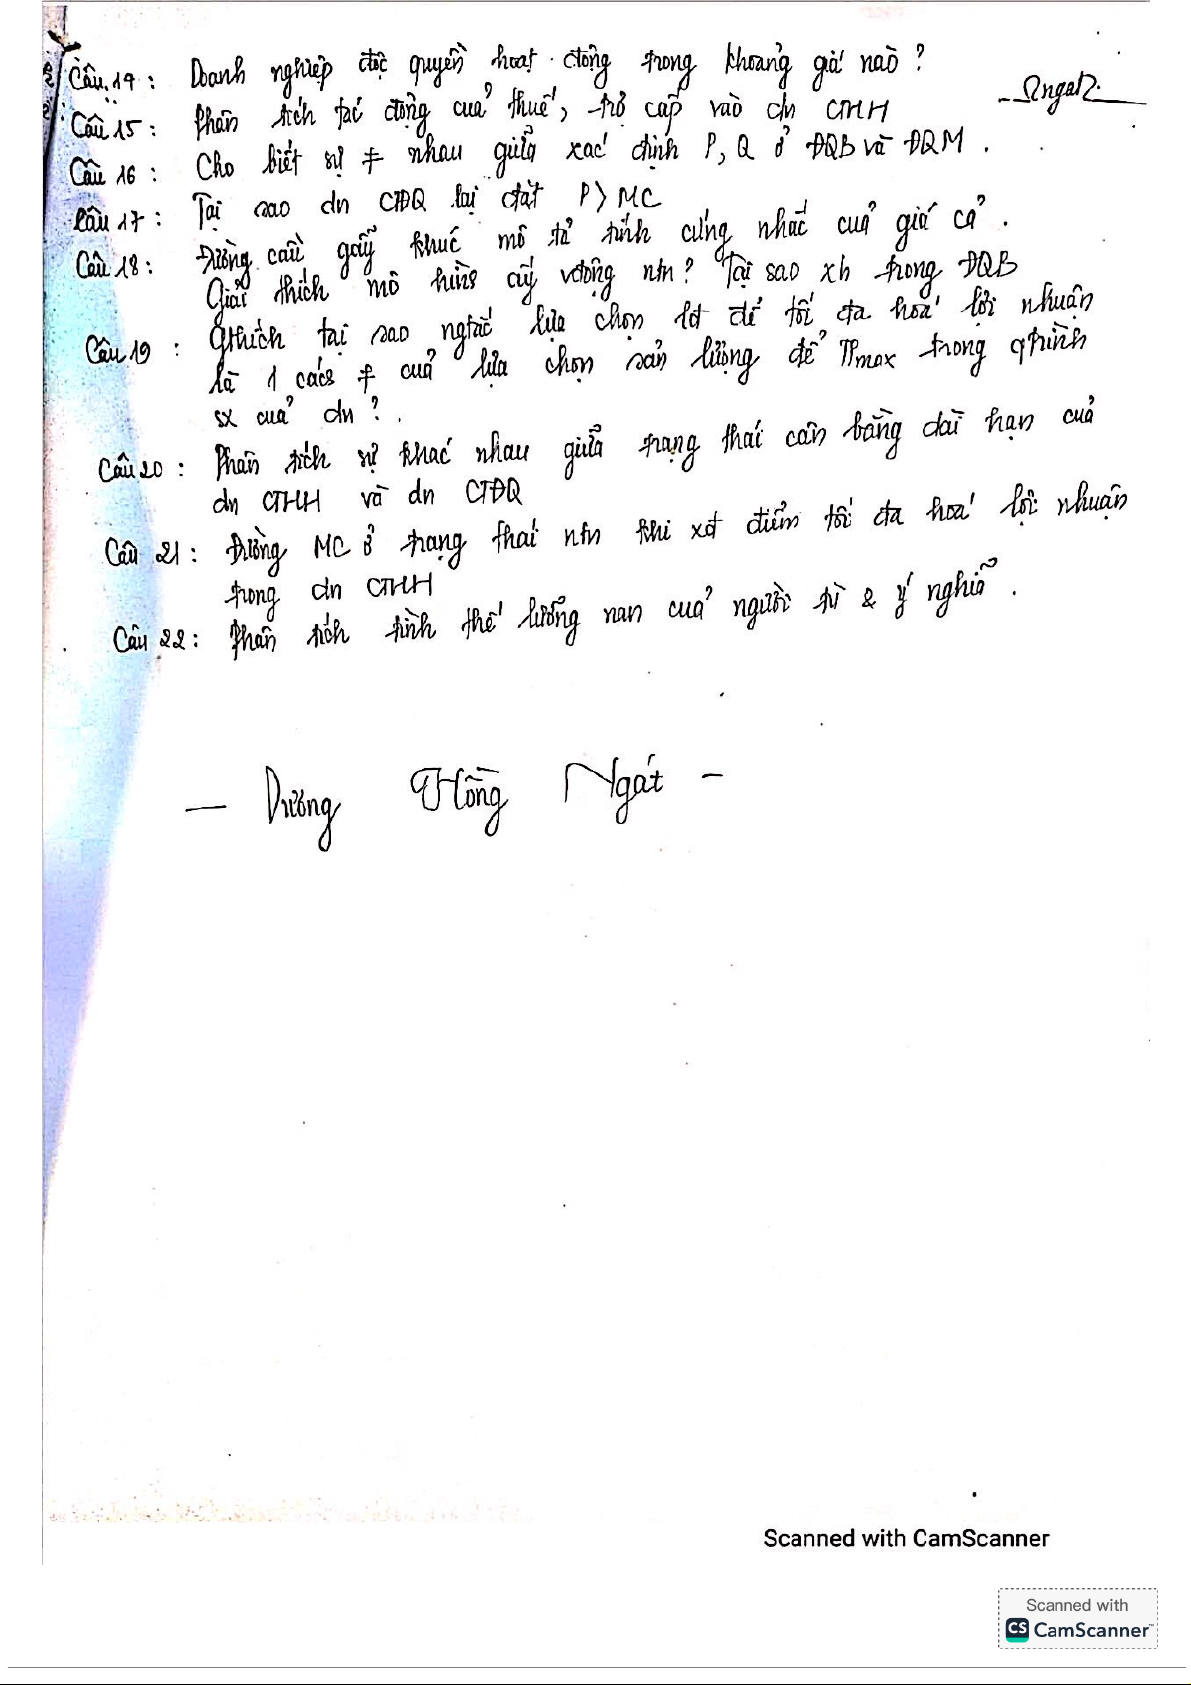 Câu 14: Doanh nghiệp độc quyền hoạt động trong khoảng giá nào?
Câu 15: Phân tích tác động của thuế, trợ cấp vào dn CTHH
Câu 16: Cho biết sự ≠ nhau giữa xác định P, Q ở ĐQB và ĐQM.
Câu 17: Tại sao dn CTĐQ lại đặt P > MC
Câu 18: Đường cầu gãy khúc mô tả tính cứng nhắc của giá cả.
Giải thích mô hình ấy vđộng ntn? Tại sao xh trong ĐQB
Câu 19: Gthích tại sao ngtắc lựa chọn lđ để tối đa hoá lợi nhuận
là 1 cách ≠ của lựa chọn sản lượng để πmax trong qtrình
sx của dn?
Câu 20: Phân tích sự khác nhau giữa trạng thái cân bằng dài hạn của
dn CTHH và dn CTĐQ
Câu 21: Đường MC ở trạng thái ntn khi xđ điểm tối đa hoá lợi nhuận
trong dn CTHH
Câu 22: Phân tích tình thế lưỡng nan của người tù & ý nghĩa.
— Dương Hồng Ngát —
Scanned with CamScanner
Scanned with
CS CamScanner